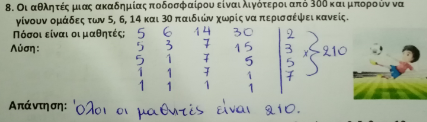 8. Οι αθλητές μιας ακαδημίας ποδοσφαίρου είναι λιγότεροι από 300 και μπορούν να
γίνουν ομάδες των 5, 6, 14 και 30 παιδιών χωρίς να περισσέψει κανείς.
Πόσοι είναι οι μαθητές; 5 6 14 30 | 2
Λύση: 5 3 7 15 | 3 x 210
5 1 7 5 | 5
1 1 7 1 | 7
1 1 1 1
Απάντηση: Όλοι οι μαθητές είναι 210.